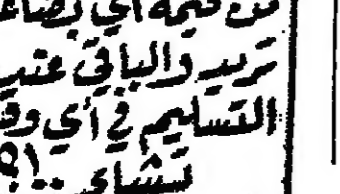 من قيمة أي بضاعة
تريد والباقي عند
التسليم في أي وقت
تشاء